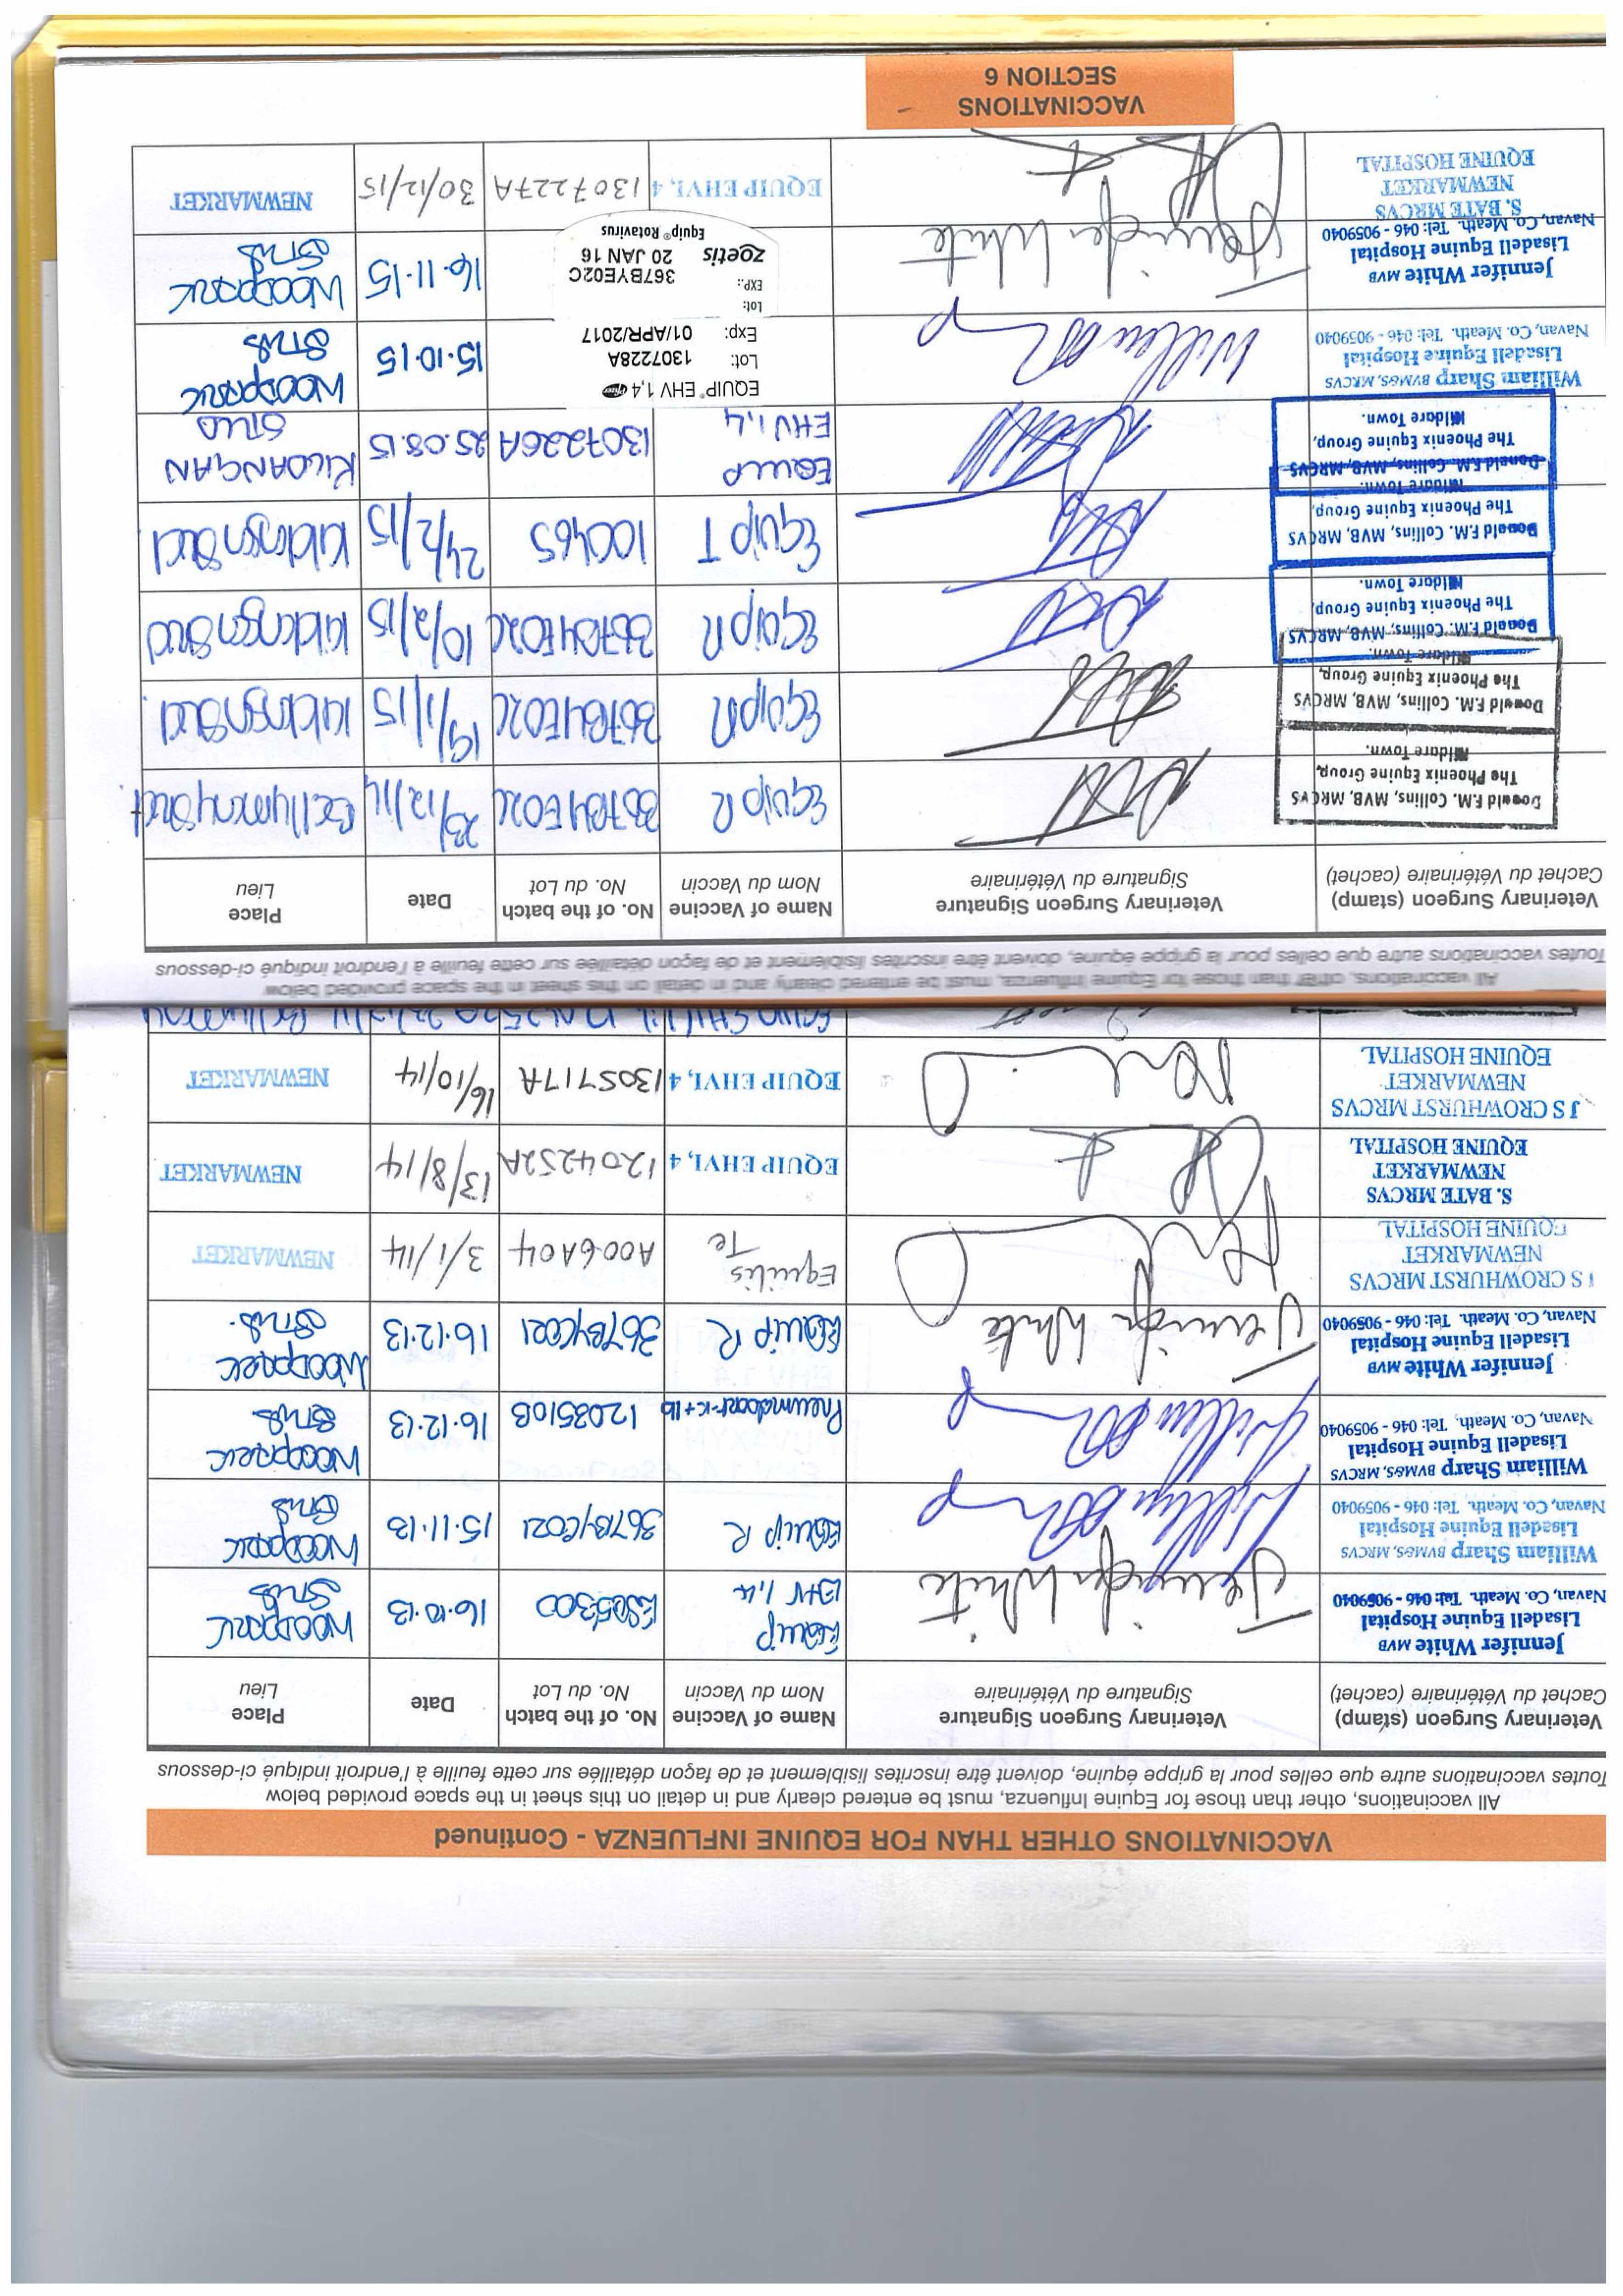 VACCINATIONS OTHER THAN FOR EQUINE INFLUENZA - Continued
All vaccinations, other than those for Equine Influenza, must be entered clearly and in detail on this sheet in the space provided below
Toutes vaccinations autre que celles pour la grippe équine, doivent être inscrites lisiblement et de façon détaillée sur cette feuille à l'endroit indiqué ci-dessous
Veterinary Surgeon (stamp) Veterinary Surgeon Signature Name of Vaccine No. of the batch Date Place
Cachet du Vétérinaire (cachet) Signature du Vétérinaire Nom du Vaccin No. du Lot Lieu
Jennifer White MVB
Lisadell Equine Hospital
Navan, Co. Meath. Tel: 046 - 9059040
Jennifer White
EQUIP
EHV 1,4
ES05300
16.10.13
WOODPARK
STUD
William Sharp BVM&S, MRCVS
Lisadell Equine Hospital
Navan, Co. Meath. Tel: 046 - 9059040
EQUIP R
367BYC021
15.11.13
WOODPARK
STUD
William Sharp BVM&S, MRCVS
Lisadell Equine Hospital
Navan, Co. Meath. Tel: 046 - 9059040
Pneumabort-K+1b
1203510B
16.12.13
WOODPARK
STUD
Jennifer White MVB
Lisadell Equine Hospital
Navan, Co. Meath. Tel: 046 - 9059040
Jennifer White
EQUIP R
367BYC021
16.12.13
WOODPARK
STUD.
J S CROWHURST MRCVS
NEWMARKET
EQUINE HOSPITAL
Equilis
Te
A006A04
3/1/14
NEWMARKET
S. BATE MRCVS
NEWMARKET
EQUINE HOSPITAL
EQUIP EHV1, 4
1204252A
13/8/14
NEWMARKET
J S CROWHURST MRCVS
NEWMARKET
EQUINE HOSPITAL
EQUIP EHV1, 4
1305717A
16/10/14
NEWMARKET
All vaccinations, other than those for Equine Influenza, must be entered clearly and in detail on this sheet in the space provided below
Toutes vaccinations autre que celles pour la grippe équine, doivent être inscrites lisiblement et de façon détaillée sur cette feuille à l'endroit indiqué ci-dessous
Veterinary Surgeon (stamp) Veterinary Surgeon Signature Name of Vaccine No. of the batch Date Place
Cachet du Vétérinaire (cachet) Signature du Vétérinaire Nom du Vaccin No. du Lot Lieu
Donald F.M. Collins, MVB, MRCVS
The Phoenix Equine Group,
Kildare Town.
Equip R
367B4E02C
23/12/14
Donald F.M. Collins, MVB, MRCVS
The Phoenix Equine Group,
Kildare Town.
Equip R
367B4E02C
19/1/15
Kildangan Stud.
Donald F.M. Collins, MVB, MRCVS
The Phoenix Equine Group,
Kildare Town.
Equip R
367B4E02C
10/2/15
Kildangan Stud
Donald F.M. Collins, MVB, MRCVS
The Phoenix Equine Group,
Kildare Town.
Equip T
100465
24/2/15
Kildangan Stud
Donald F.M. Collins, MVB, MRCVS
The Phoenix Equine Group,
Kildare Town.
EQUIP
EHV 1,4
1307226A
25.08.15
KILDANGAN
STUD
William Sharp BVM&S, MRCVS
Lisadell Equine Hospital
Navan, Co. Meath. Tel: 046 - 9059040
EQUIP® EHV 1,4
Lot: 1307228A
Exp: 01/APR/2017
15.10.15
WOODPARK
STUD
Jennifer White MVB
Lisadell Equine Hospital
Navan, Co. Meath. Tel: 046 - 9059040
Jennifer White
Lot:
EXP.: 367BYE02C
zoetis 20 JAN 16
Equip® Rotavirus
16.11.15
WOODPARK
STUD
S. BATE MRCVS
NEWMARKET
EQUINE HOSPITAL
EQUIP EHV1, 4
1307227A
30/12/15
NEWMARKET
VACCINATIONS
SECTION 6